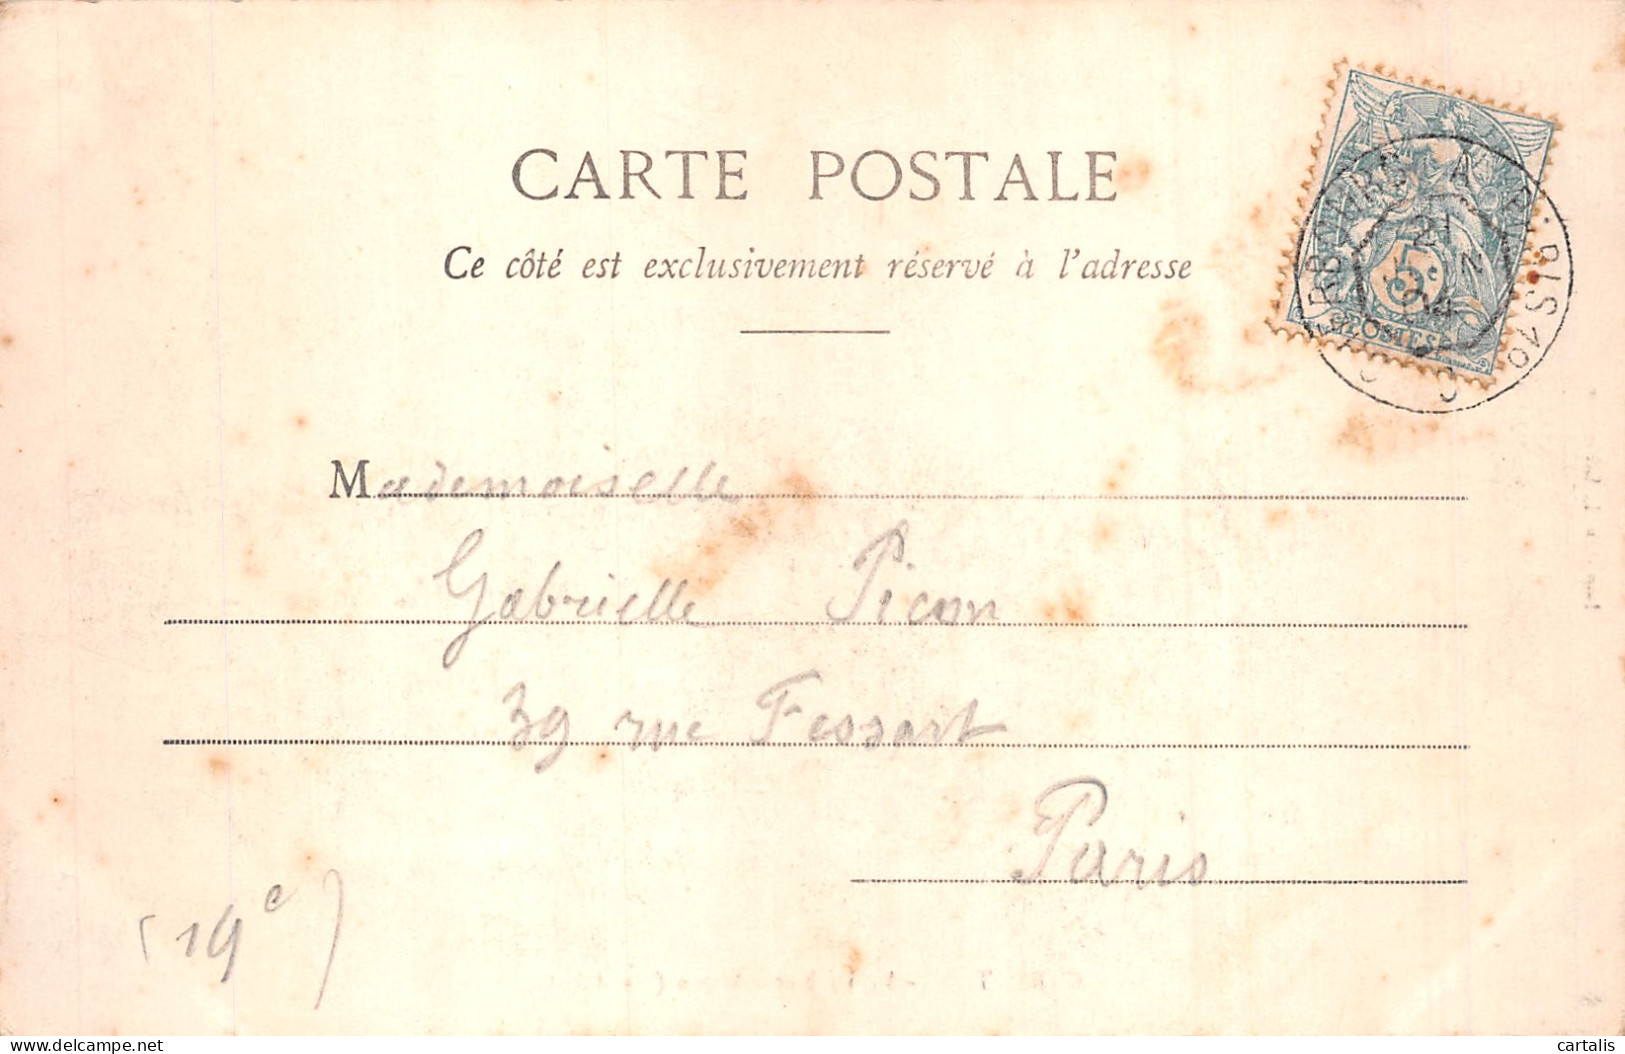 CARTE POSTALE
Ce côté est exclusivement réservé à l'adresse
5c
POSTES
21
Mademoiselle
Gabrielle Picon
39 rue Fessart
Paris
(19e)
delcampe.net
cartalis